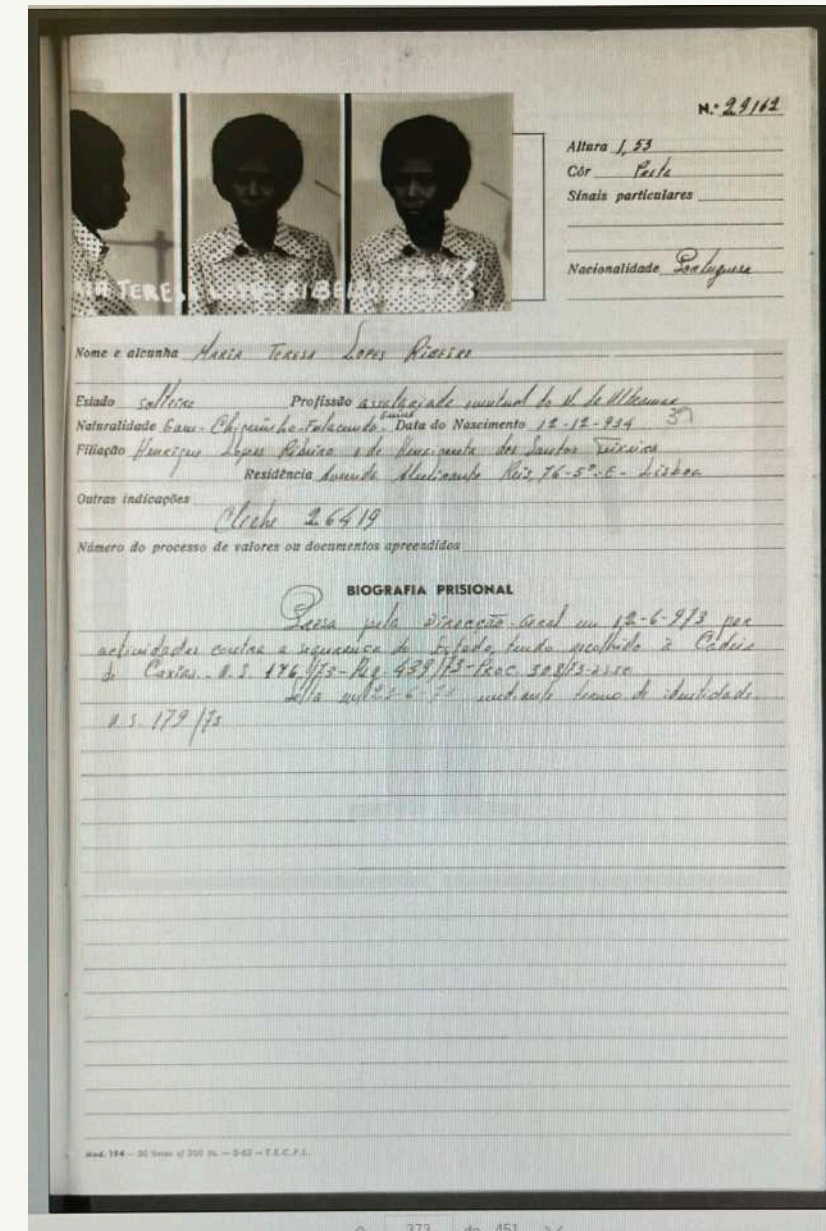 N.º 29162
Altura 1,53
Côr Preta
Sinais particulares
Nacionalidade Portuguesa
TERE LOPES RIBEIRO
Nome e alcunha MARIA TERESA LOPES RIBEIRO
Estado solteira Profissão assalariada eventual do M. do Ultramar
Naturalidade Fulacunda - Guiné Data do Nascimento 12-12-934 39
Filiação Henrique Lopes Ribeiro e de Henriqueta dos Santos Teixeira
Residência Avenida Almirante Reis, 76-5º-E - Lisboa
Outras indicações
Cliché 26419
Número do processo de valores ou documentos apreendidos
BIOGRAFIA PRISIONAL
Presa pela Direcção-Geral em 12-6-973 por
actividades contra a segurança do Estado, tendo recolhido à Cadeia
de Caxias. O.S. 176/73 - 439/73 - Proc. 308/73
em mediante termo de identidade.
O.S. 179/73
Mod. 194
373 de 451